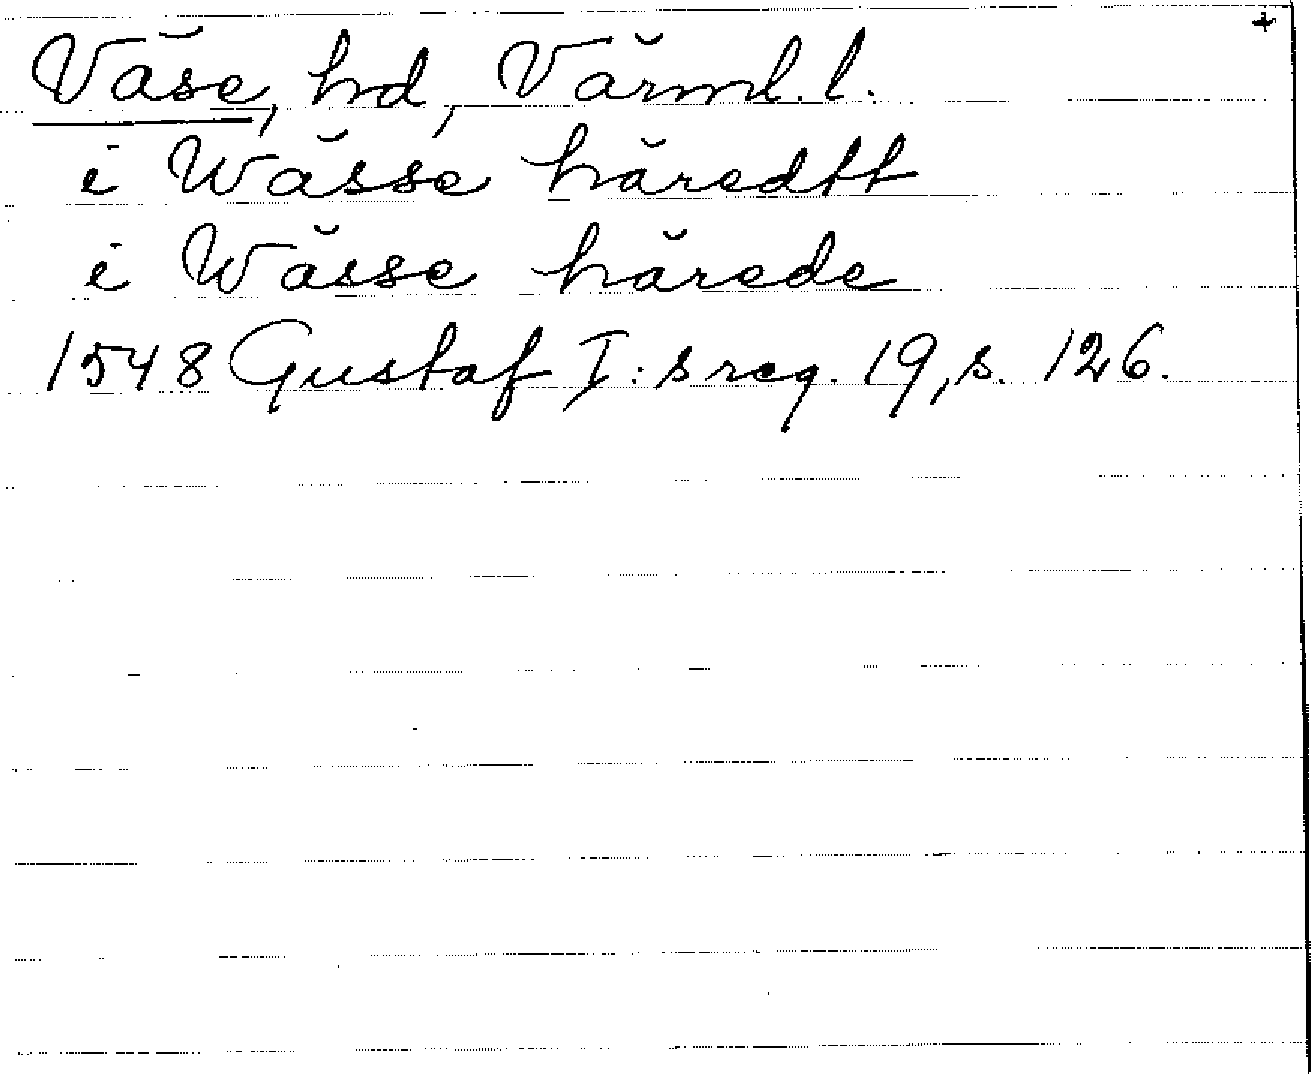 +
Väse, hd, Värml. l.
i Wässe häredtt
i Wässe härede
1548 Gustaf I: s reg. 19, s. 126.